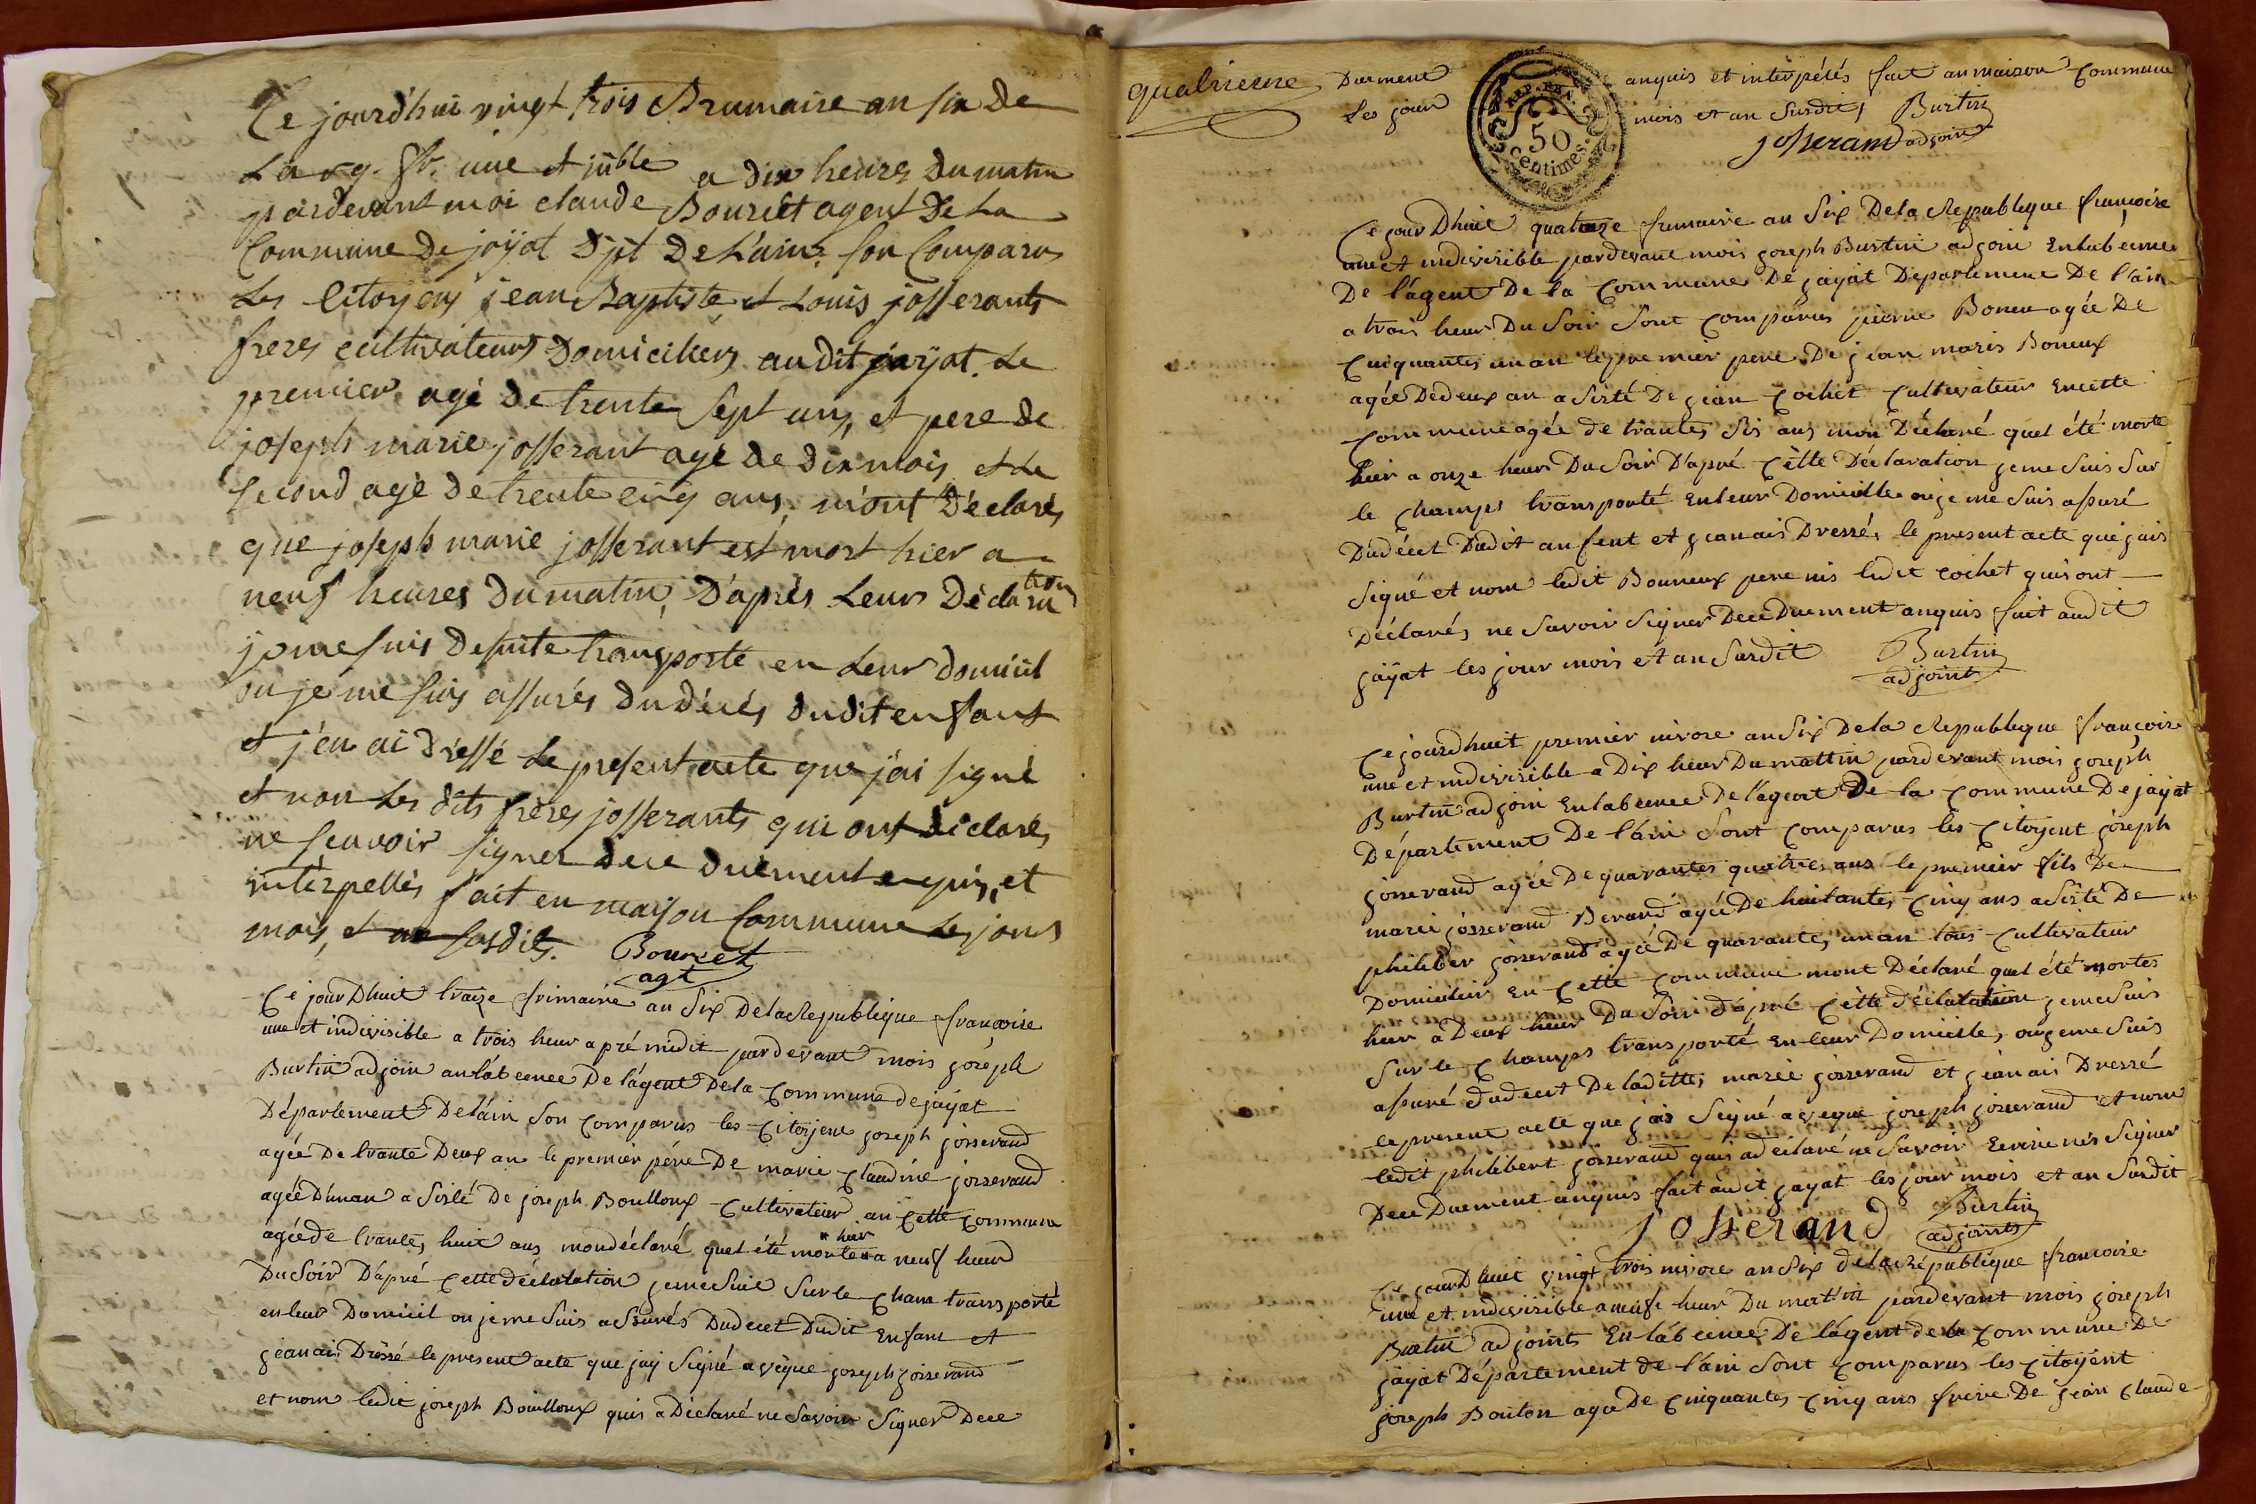 Ce jourd'hui vingt trois Brumaire an six de
La rep. fr. une et jñble a dix heures du matin
pardevant moi claude Bourcet agent De La
Commune De jaÿat Dpt De L'ain: son Comparus
Les Citoyens jean Baptiste et Louis josserants
freres cultivateurs Domiciliers audit jaÿat. Le
premier agé de trente sept ans, et pere de
joseph marie josserant agé de dix mois et Le
second agé de trente cinq ans, m'ont Déclarés
que joseph marie josserant est mort hier a
neuf heures du matin, D'après Leur Déclaration
je me suis De suite transporté en Leur domicil
ou je me suis assurés du décés dudit enfant
et j'en ai dressé Le present acte que j'ai signé
et non Les dits frères josserants qui ont déclarés
ne scavoir signer dece duement enquis, et
interpellés fait en maison Commune Les jours
mois, et an susdits. Bourcet
agt
Ce jour Dhuit traize frimaire an Six De la Republique francoise
une et indivisible a trois heur apré midit pardevant mois joseph
Burtin adjoin an lábcence De lágent De la Commune de jaÿat
Département De láin Son comparus les Citoÿent joseph josserand
agée De trante Deux an le premier pére De marie Claudine josserand
agée D'unan a Sisté De joseph Boulloux Cultivateur an Cette Commune
agée de trante, huit ans mondéclaré quel été morte * hier * a neuf heur
Du Soir D'apré Cette déclalation jeme Suis Sur le Cham transporté
en leur Domicil ou je me Suis assurés Dudecet Dudit Enfant et
jeanais Dréssé le present acte que jaÿ Signé avéque joseph josserand
et nom ledit joseph Boulloux quis a Déclaré ne Savoir Signer Dece
quatrieme
Duement anquis et interpélés fait an maison Commune
Les jour mois et an Susdit, Burtin
josserand adjoin
REP. FRA.
50
Centimes.
Ce jour Dhuit quatorze frimaire an Six De la Republique françoise
une et indivisible pardevant mois joseph Burtin adjoin En labcence
De l'ágent De la Commune De jaÿat Departement De l'ain
a trois heur Du Soir Sont Comparus pierre Boneu agée De
Cinquantes unan le premier pere De jean maris Boneux
agée De deux an a Sisté De jean Cochet Cultivateur En cette
Commune agée de trantes Sis ans mon Déclaré quel été morte
hier a onze heur Du Soir D'apré Cette Déclaration jeme Suis Sur
le Champs transporté En leur Domicille ouje me Suis assuré
Dudécet Dudit anfent et jeanais Dressé, le present acte que jais
Signé et nom ledit Bonneux pere nis ledit Cochet quis ont
Déclarés ne Savoir Signer Dece Duement anquis fait audit
jaÿat les jour mois et an Susdit Burtin
adjoint
Ce jourdhuit premier nivose an Six De la Republique françoise
une et indivisible a Dix heur Du mattin pardevant mois joseph
Burtin adjoin En labcence De l'agent De la Commune De jaÿat
Département De l'ain Sont Comparus les Citoyent joseph
josserand agée De quarantes quatres ans le premier fils De
marie josserand Berand agée De huitantes Cinq ans a Sisté De
philiber josserand agée De quarantes unan tous Cultivateur
Domicilier En Cette Commune mont Déclaré quel été mortes
hier a Deux heur Du Soir d'apré Cette déclalation jeme Suis
Sur le Champs transporté en leur Domicille, ouje me Suis
assuré dudecet De laditte, marie josserand et jeanais Dressé
le present acte que jais Signé aveque joseph josserand et nom
ledit philibert josserand quis adéclaré ne Savoir Ecrire nis Signer
Dece Duement anquis fait audit jayat les jour mois et an Susdit
josserand Burtin
adjoints
Ce jour Dhuit vingt trois nivose an Six de la République francoise
une et indivisible a neufe heur Du matin pardevant mois joseph
Burtin adjoints En lábcence De lágent de la Commune De
jaÿat Département de l'ain Sont Comparus les Citoÿent
joseph Bouton agée De Cinquantes Cinq ans frere De jean Claude